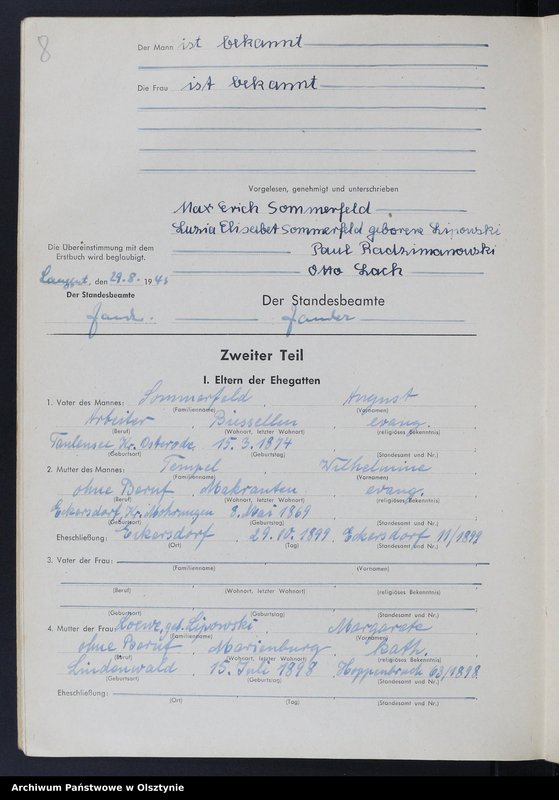 8
Der Mann ist bekannt
Die Frau ist bekannt
Vorgelesen, genehmigt und unterschrieben
Max Erich Sommerfeld
Luzia Elisabet Sommerfeld geborene Lipowski
Paul Radzimanowski
Otto Lach
Die Übereinstimmung mit dem
Erstbuch wird beglaubigt.
Langgut, den 29.8. 1943
Der Standesbeamte
Der Standesbeamte
Zweiter Teil
I. Eltern der Ehegatten
1. Vater des Mannes: Sommerfeld, August
(Familienname) (Vornamen)
Arbeiter, Biessellen, evang.
(Beruf) (Wohnort, letzter Wohnort) (religiöses Bekenntnis)
Taulensee Kr. Osterode, 15.3.1874
(Geburtsort) (Geburtstag) (Standesamt und Nr.)
2. Mutter des Mannes: Tempel, Wilhelmine
(Familienname) (Vornamen)
ohne Beruf, Makrauten, evang.
(Beruf) (Wohnort, letzter Wohnort) (religiöses Bekenntnis)
Eckersdorf, Kr. Mohrungen 8. Mai 1869
(Geburtsort) (Geburtstag) (Standesamt und Nr.)
Eheschließung: Eckersdorf, 29.10.1899, Eckersdorf 11/1899
(Ort) (Tag) (Standesamt und Nr.)
3. Vater der Frau:
(Familienname) (Vornamen)
(Beruf) (Wohnort, letzter Wohnort) (religiöses Bekenntnis)
(Geburtsort) (Geburtstag) (Standesamt und Nr.)
4. Mutter der Frau: Loewe, geb. Lipowski, Margarete
(Familienname) (Vornamen)
ohne Beruf, Marienburg, kath.
(Beruf) (Wohnort, letzter Wohnort) (religiöses Bekenntnis)
Lindenwald, 15. Juli 1898, Hoppenbruch 63/1898
(Geburtsort) (Geburtstag) (Standesamt und Nr.)
Eheschließung:
(Ort) (Tag) (Standesamt und Nr.)
Archiwum Państwowe w Olsztynie